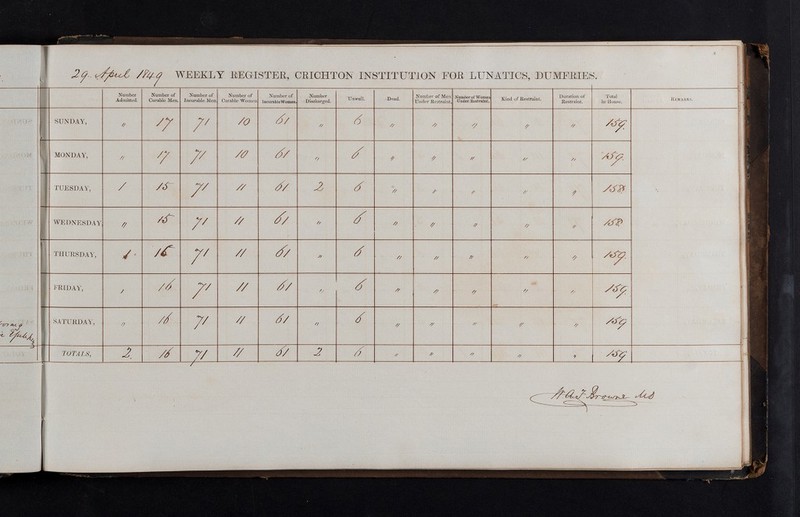 29. April 1849 WEEKLY REGISTER, CRICHTON INSTITUTION FOR LUNATICS, DUMFRIES.
Number Admitted. Number of Curable Men. Number of Incurable Men. Number of Curable Women. Number of Incurable Women. Number Discharged. Unwell. Dead. Number of Men Under Restraint. Number of Women Under Restraint. Kind of Restraint. Duration of Restraint. Total in House. REMARKS.
SUNDAY, " 17 71 10 61 " 6 " " " " " 159.
MONDAY, " 17 71 10 61 " 6 " " " " " 159.
TUESDAY, 1 15 71 11 61 2 6 " " " " " 158
WEDNESDAY, " 15 71 11 61 " 6 " " " " " 158
THURSDAY, 1 16 71 11 61 " 6 " " " " " 159
FRIDAY, / 16 71 11 61 " 6 " " " " " 159.
SATURDAY, " 16 71 11 61 " 6 " " " " " 159
TOTALS, 2. 16 71 11 61 2 6 " " " " " 159
W.A.F. Browne MD